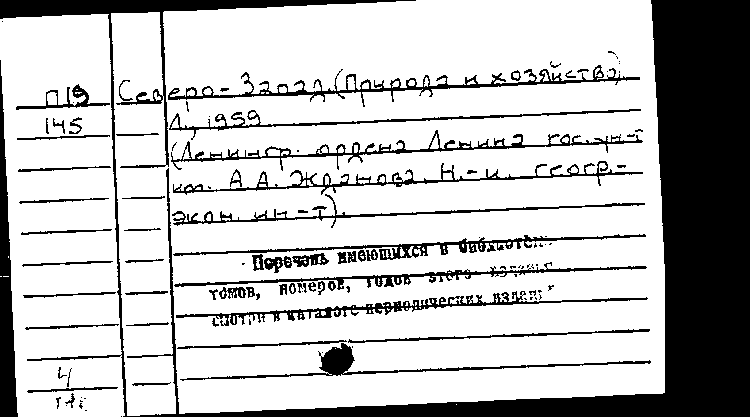 П19 Северо-Запад. (Природа и хозяйство).
145 Л., 1959
(Ленингр. ордена Ленина гос. ун-т
им. А.А. Жданова. Н.-и. геогр.-
экон. ин-т).
Перечень имеющихся в библиотеке
томов, номеров, годов этого издания
смотри в каталоге периодических изданий
4